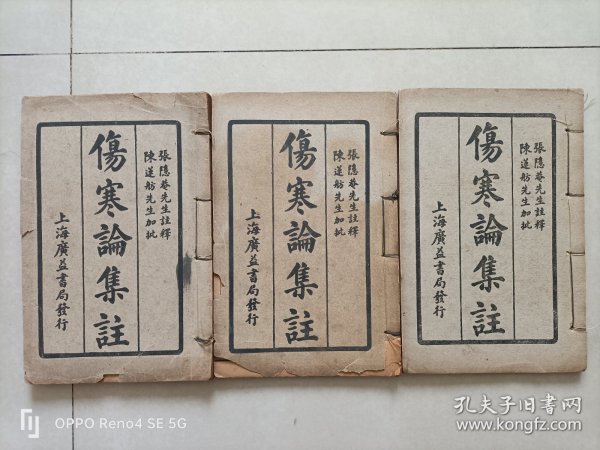 張隱菴先生註釋
陳蓮舫先生加批
傷寒論集註
上海廣益書局發行
張隱菴先生註釋
陳蓮舫先生加批
傷寒論集註
上海廣益書局發行
張隱菴先生註釋
陳蓮舫先生加批
傷寒論集註
上海廣益書局發行
OPPO Reno4 SE 5G
孔夫子旧书网
www.kongfz.com